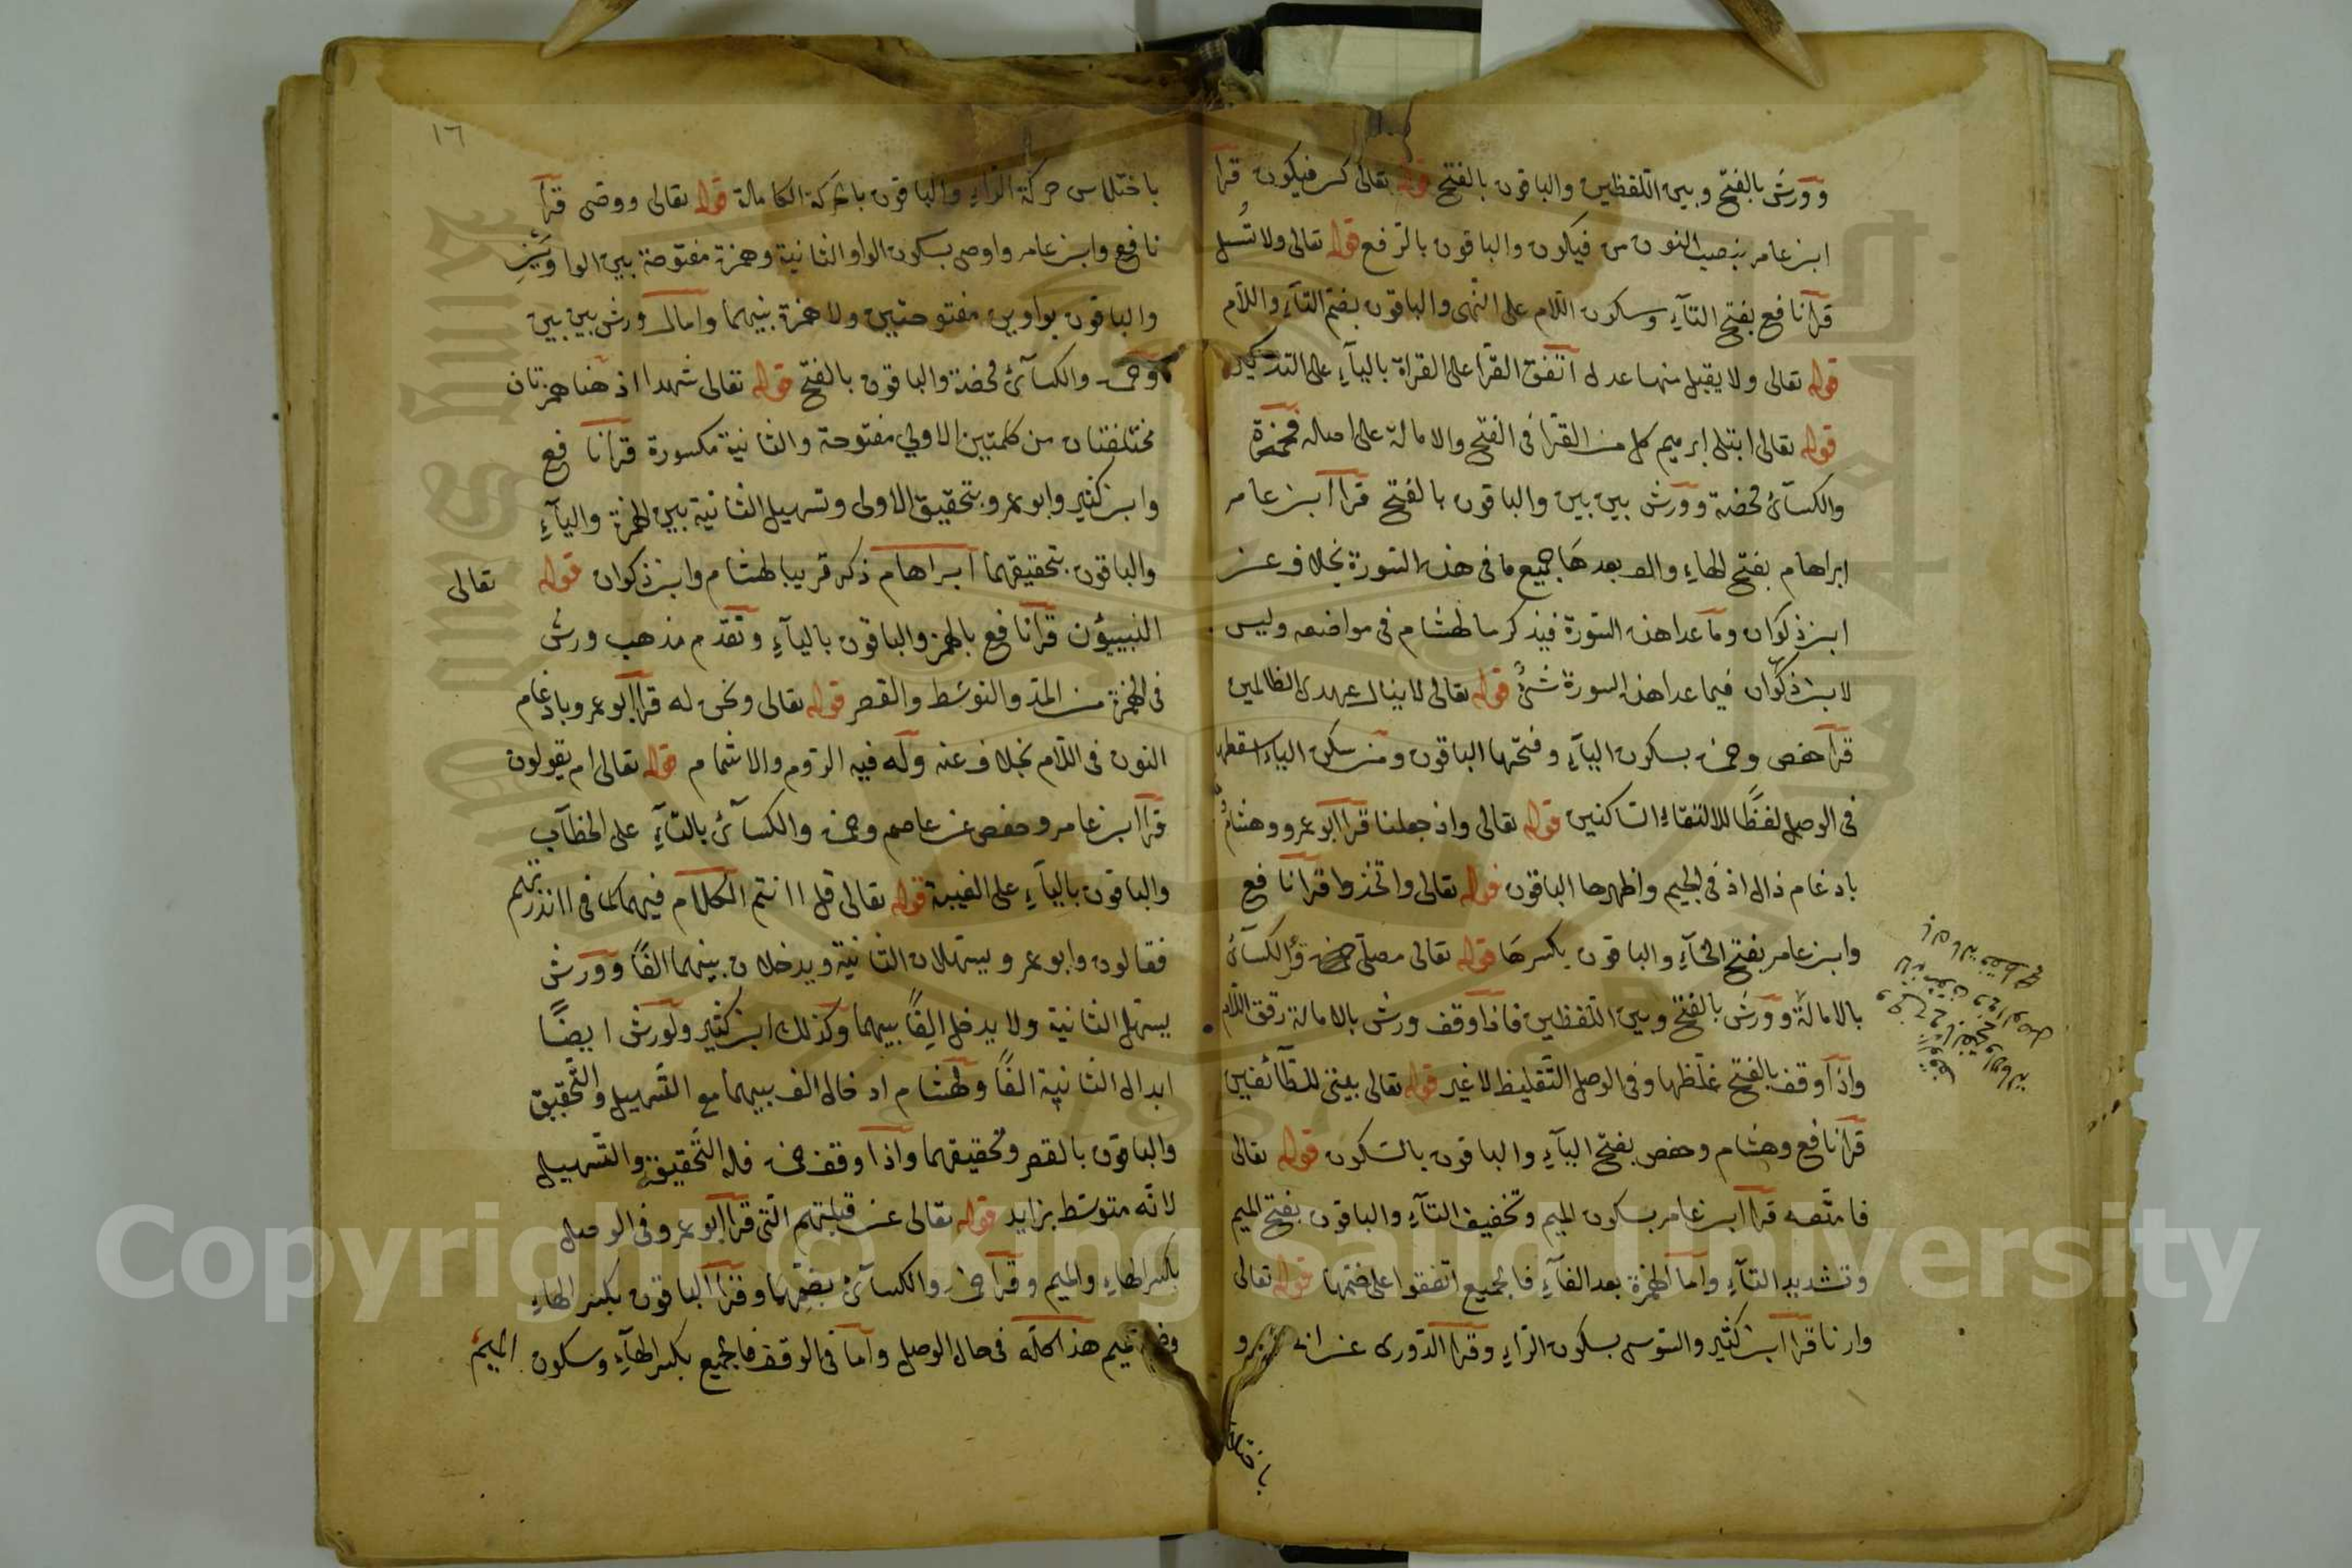 وورش بالفتح وبين اللفظين والباقون بالفتح قوله تعالى كن فيكون قرأ
ابن عامر بنصب النون من فيكون والباقون بالرفع قوله تعالى ولا تسئل
قرأ نافع بفتح التآء وسكون اللام على النهى والباقون بضم التآء واللام
قوله تعالى ولا يقبل منها عدل اتفق القرآ على القراة باليآء على التذكير
قوله تعالى ابتلى ابرهيم كل من القرآ فى الفتح والامالة على اصله فحمزة
والكسآئ محضة وورش بين بين والباقون بالفتح قرأ ابن عامر
ابراهام بفتح الهاء والف بعدها جميع ما فى هذه السورة بخلاف عن
ابن ذكوان وما عدا هذه السورة فيذكر ما لهشام فى مواضعه وليس
لابن ذكوان فيما عدا هذه السورة شئ قوله تعالى لا ينال عهدى الظالمين
قرأ حفص وحمزة بسكون اليآء وفتحها الباقون ومن سكن الياء اسقطها
فى الوصل لفظًا لالتقاء الساكنين قوله تعالى واذ جعلنا قرأ ابو عمرو وهشام
بادغام ذال اذ فى الجيم واظهرها الباقون قوله تعالى واتخذوا قرأ نافع
وابن عامر بفتح الخآء والباقون بكسرها قوله تعالى مصلى قرأ الكسآئ
بالامالة وورش بالفتح وبين اللفظين فاذا وقف ورش بالامالة رقق اللام
واذا وقف بالفتح غلظها وفى الوصل التغليظ لا غير قوله تعالى بيتى للطآئفين
قرأ نافع وهشام وحفص بفتح اليآء والباقون بالسكون قوله تعالى
فامتعه قرأ ابن عامر بسكون الميم وتخفيف التآء والباقون بفتح الميم
وتشديد التآء واما الهمزة بعد الفآء فالجميع اتفقوا على ضمها قوله تعالى
وارنا قرأ ابن كثير والسوسى بسكون الرآء وقرأ الدورى عن ابى عمرو
باختلاس
١٦
باختلاس حركة الرآء والباقون بالحركة الكاملة قوله تعالى ووصى قرأ
نافع وابن عامر واوصى بسكون الواو الثانية وهمزة مفتوحة بين الواوين
والباقون بواوين مفتوحتين ولا همزة بينهما وامال ورش بين بين
وحمزة والكسآئ محضة والباقون بالفتح قوله تعالى شهدا اذ هنا همزتان
مختلفتان من كلمتين الاولى مفتوحة والثانية مكسورة قرأ نافع
وابن كثير وابو عمرو بتحقيق الاولى وتسهيل الثانية بين الهمزة واليآء
والباقون بتحقيقهما ابراهام ذكر قريبا لهشام وابن ذكوان قوله تعالى
النبيئون قرأ نافع بالهمز والباقون باليآء وتقدم مذهب ورش
فى الهمزة من المد والتوسط والقصر قوله تعالى ونحن له قرأ ابو عمرو بادغام
النون فى اللام بخلاف عنه وله فيه الروم والاشمام قوله تعالى ام يقولون
قرأ ابن عامر وحفص عن عاصم وحمزة والكسآئ بالتآء على الخطآب
والباقون باليآء على الغيبة قوله تعالى قل اانتم الكلام فيهما كما فى اانذرتهم
فقالون وابو عمرو يسهلان الثانية ويدخلان بينهما الفًا وورش
يسهل الثانية ولا يدخل الفًا بينهما وكذلك ابن كثير ولورش ايضًا
ابدال الثانية الفًا ولهشام ادخال الف بينهما مع التسهيل والتحقيق
والباقون بالقصر وتحقيقهما واذا وقف حمزة فله التحقيق والتسهيل
لانه متوسط بزايد قوله تعالى عن قبلتهم التى قرأ ابو عمرو فى الوصل
بكسر الهاء والميم وقرأ حمزة والكسآئ بضمهما وقرأ الباقون بكسر الهاء
وضم الميم هذا كله فى حال الوصل واما فى الوقف فالجميع بكسر الهآء وسكون الميم
Copyright © King Saud University